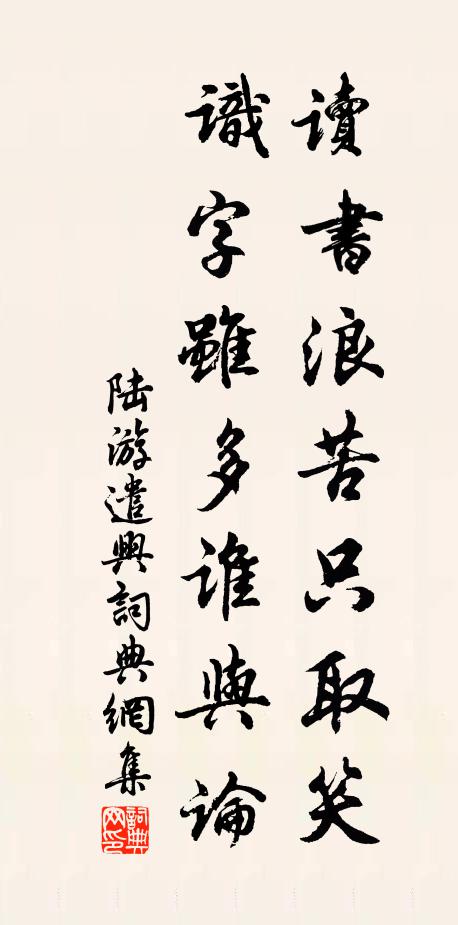 讀書浪苦只取笑
識字雖多誰與論
陸游遣興詞典網集
詞典
网